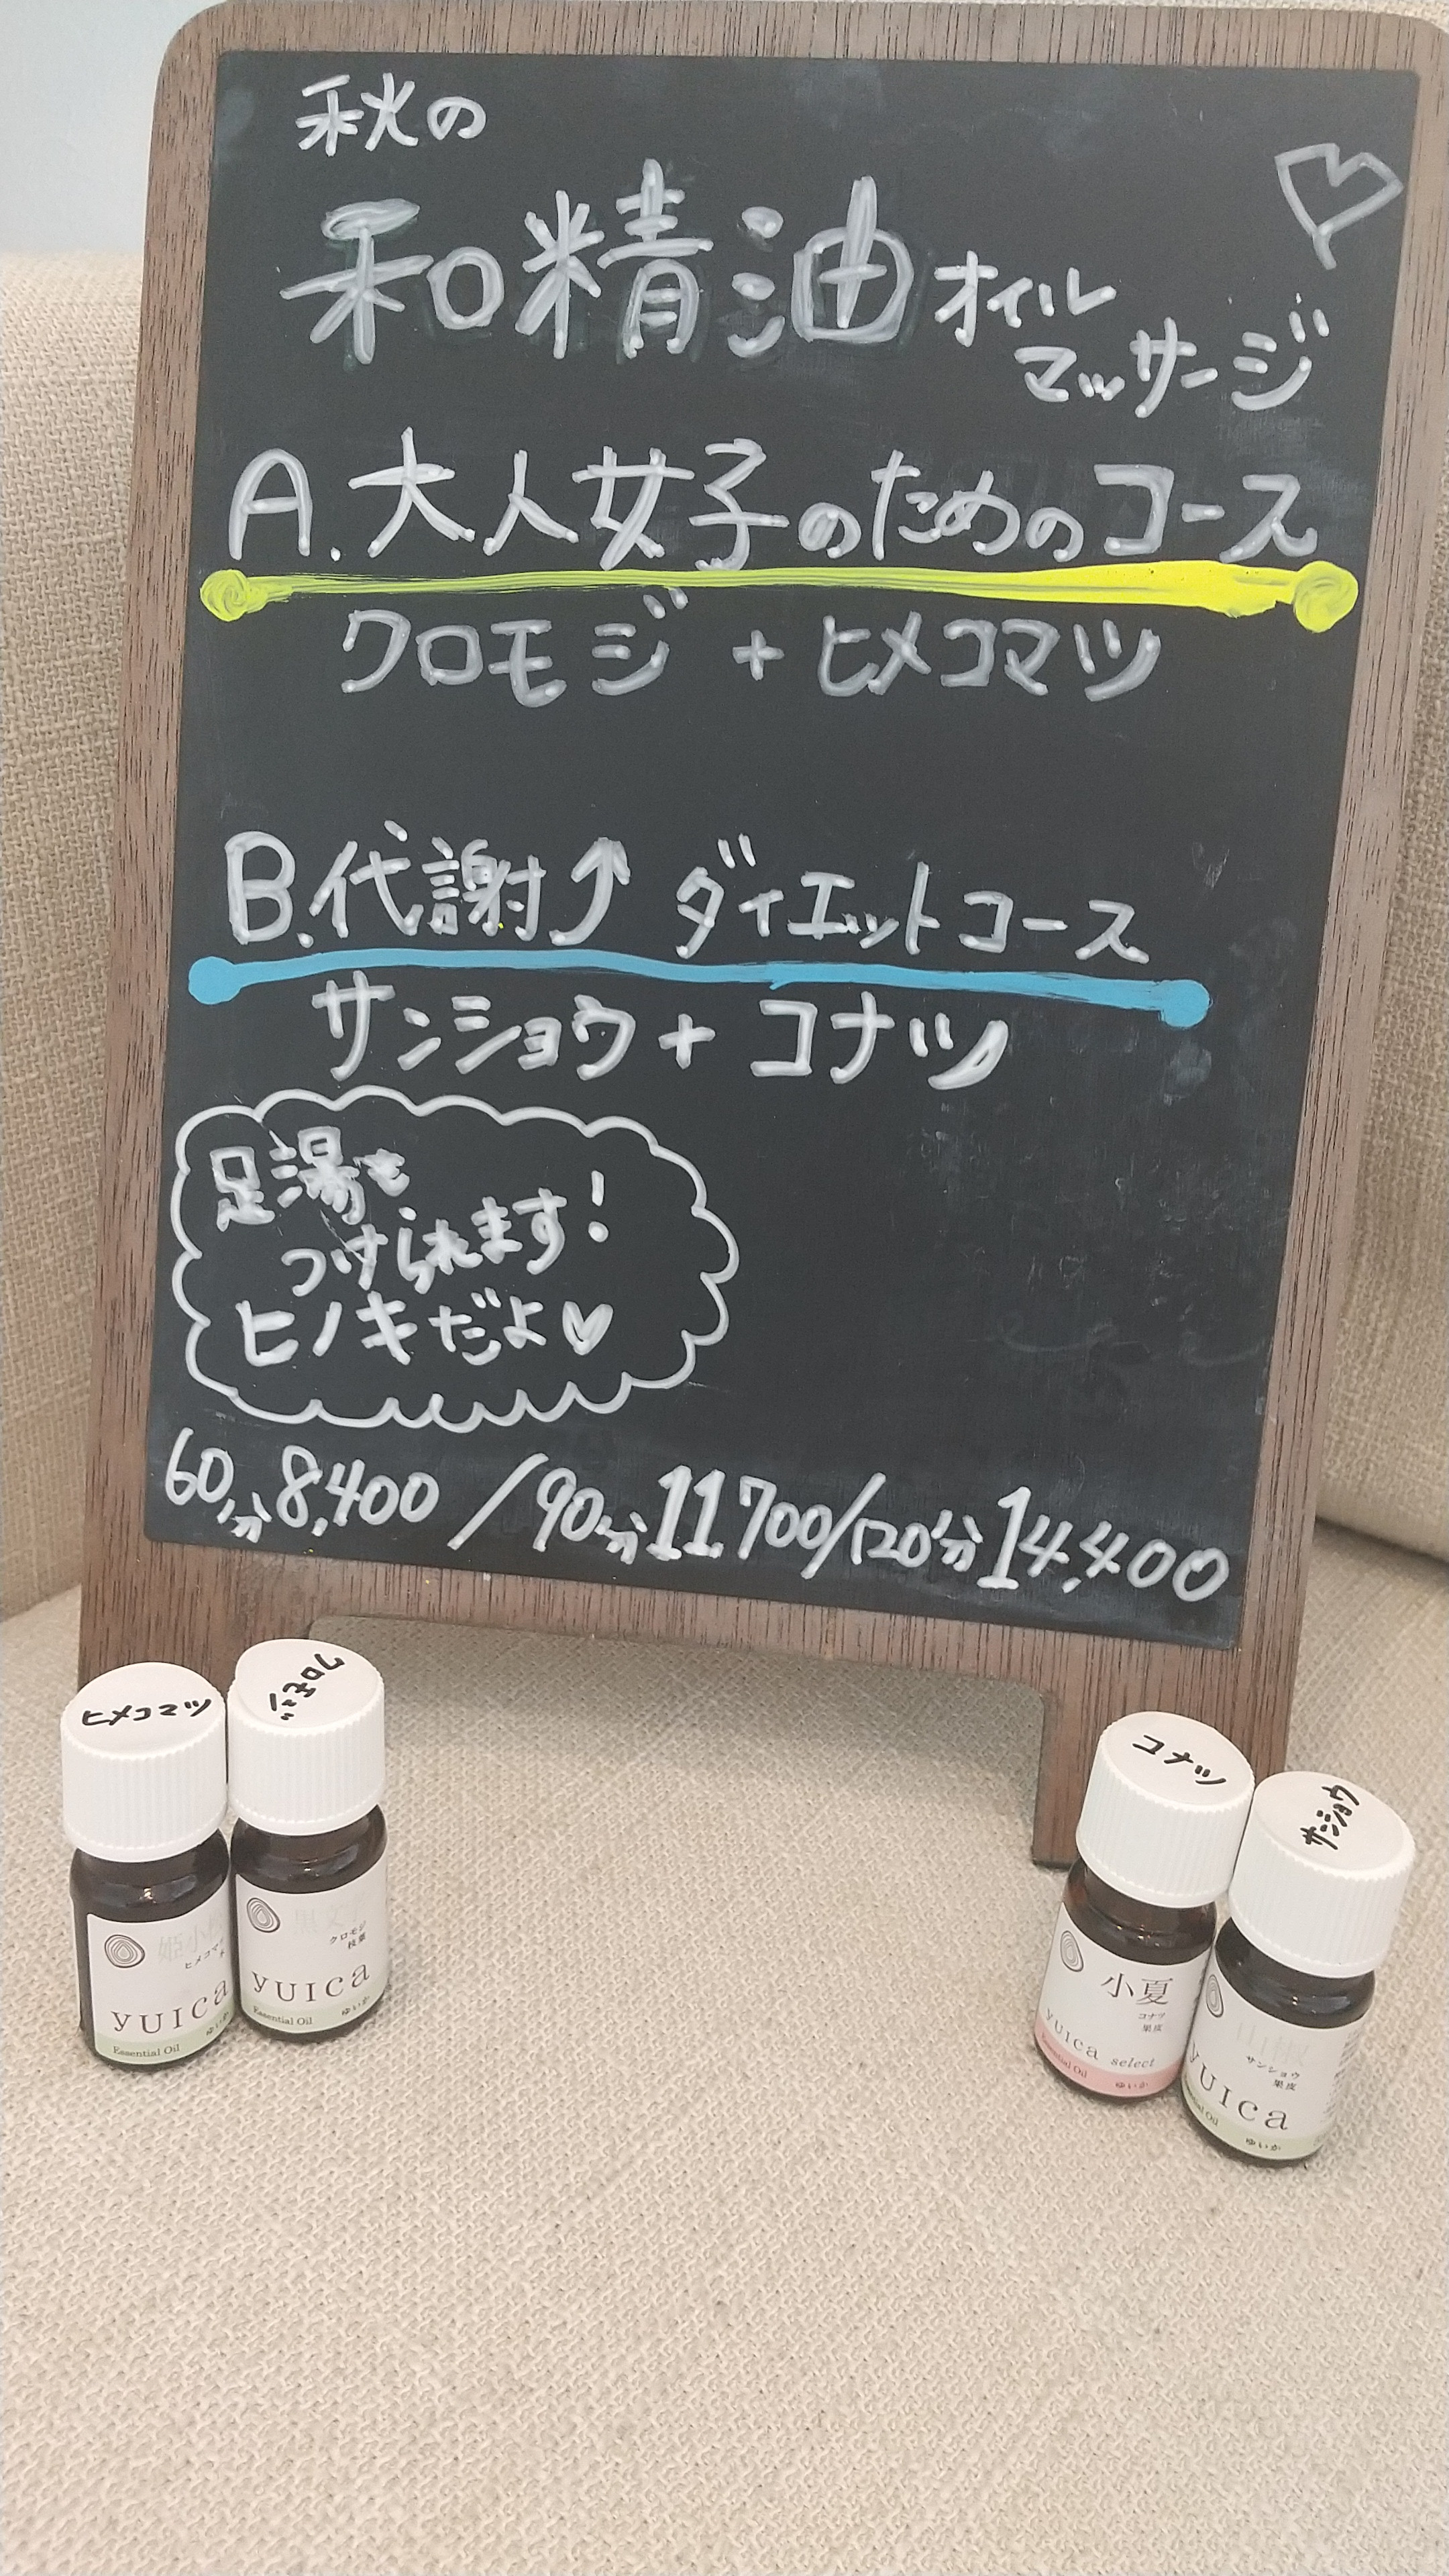 秋の
和精油オイル
マッサージ
A.大人女子のためのコース
クロモジ + ヒメコマツ
B.代謝↑ ダイエットコース
サンショウ + コナツ
足湯も
つけられます!
ヒノキだよ♥
60分8,400 / 90分11700/120分14,400
ヒメコマツ
クロモジ
コナツ
サンショウ
姫小
ヒメコマツ
yUIca
Essential Oil
ゆいか
黒文
クロモジ
枝葉
yUIca
Essential Oil
ゆいか
小夏
コナツ
果皮
yUIca select
Essential Oil
ゆいか
山椒
サンショウ
果皮
yUIca
ゆいか